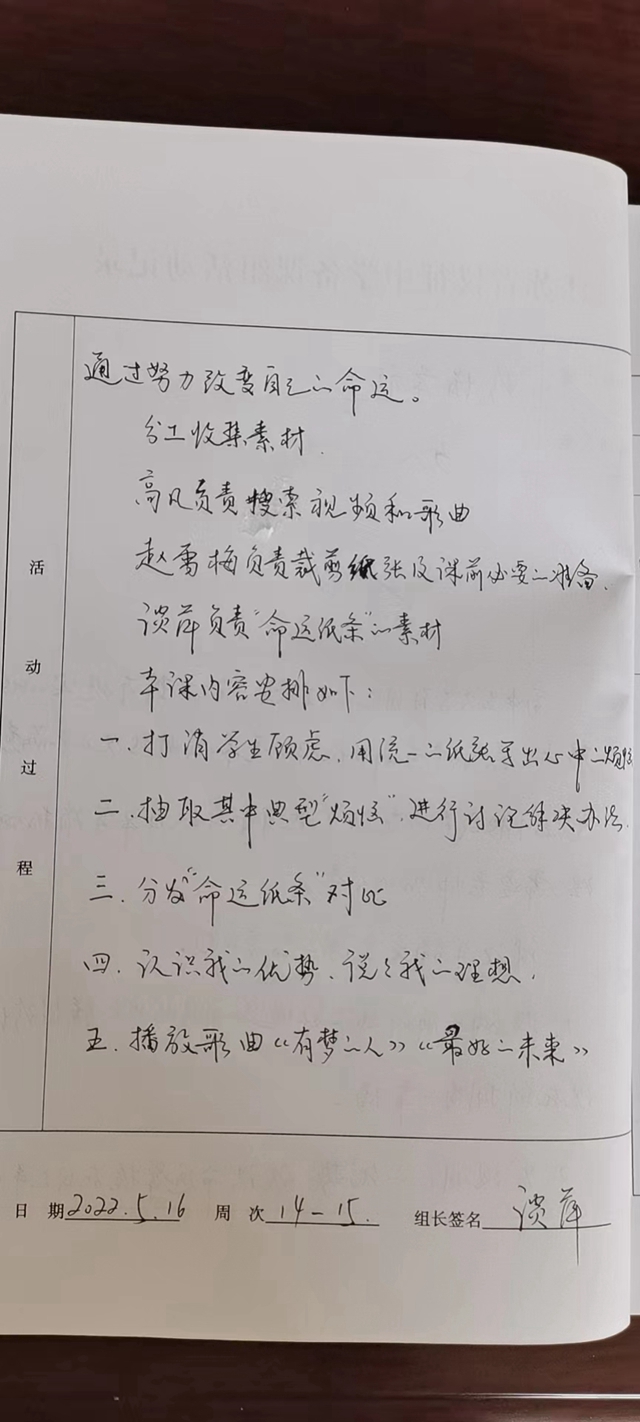 活动过程
通过努力改变自己的命运。
分工收集素材
高凡负责搜索视频和歌曲
赵雪梅负责裁剪纸张及课前必要的准备.
谈萍负责“命运纸条”的素材
本课内容安排如下:
一.打消学生顾虑.用统一的纸张写出心中的烦恼
二.抽取其中典型“烦恼”.进行讨论解决办法.
三.分发“命运纸条”对比
四.认识我的优势.说说我的理想.
五.播放歌曲《有梦的人》《最好的未来》
日 期 2022.5.16 周 次 14-15. 组长签名 谈萍